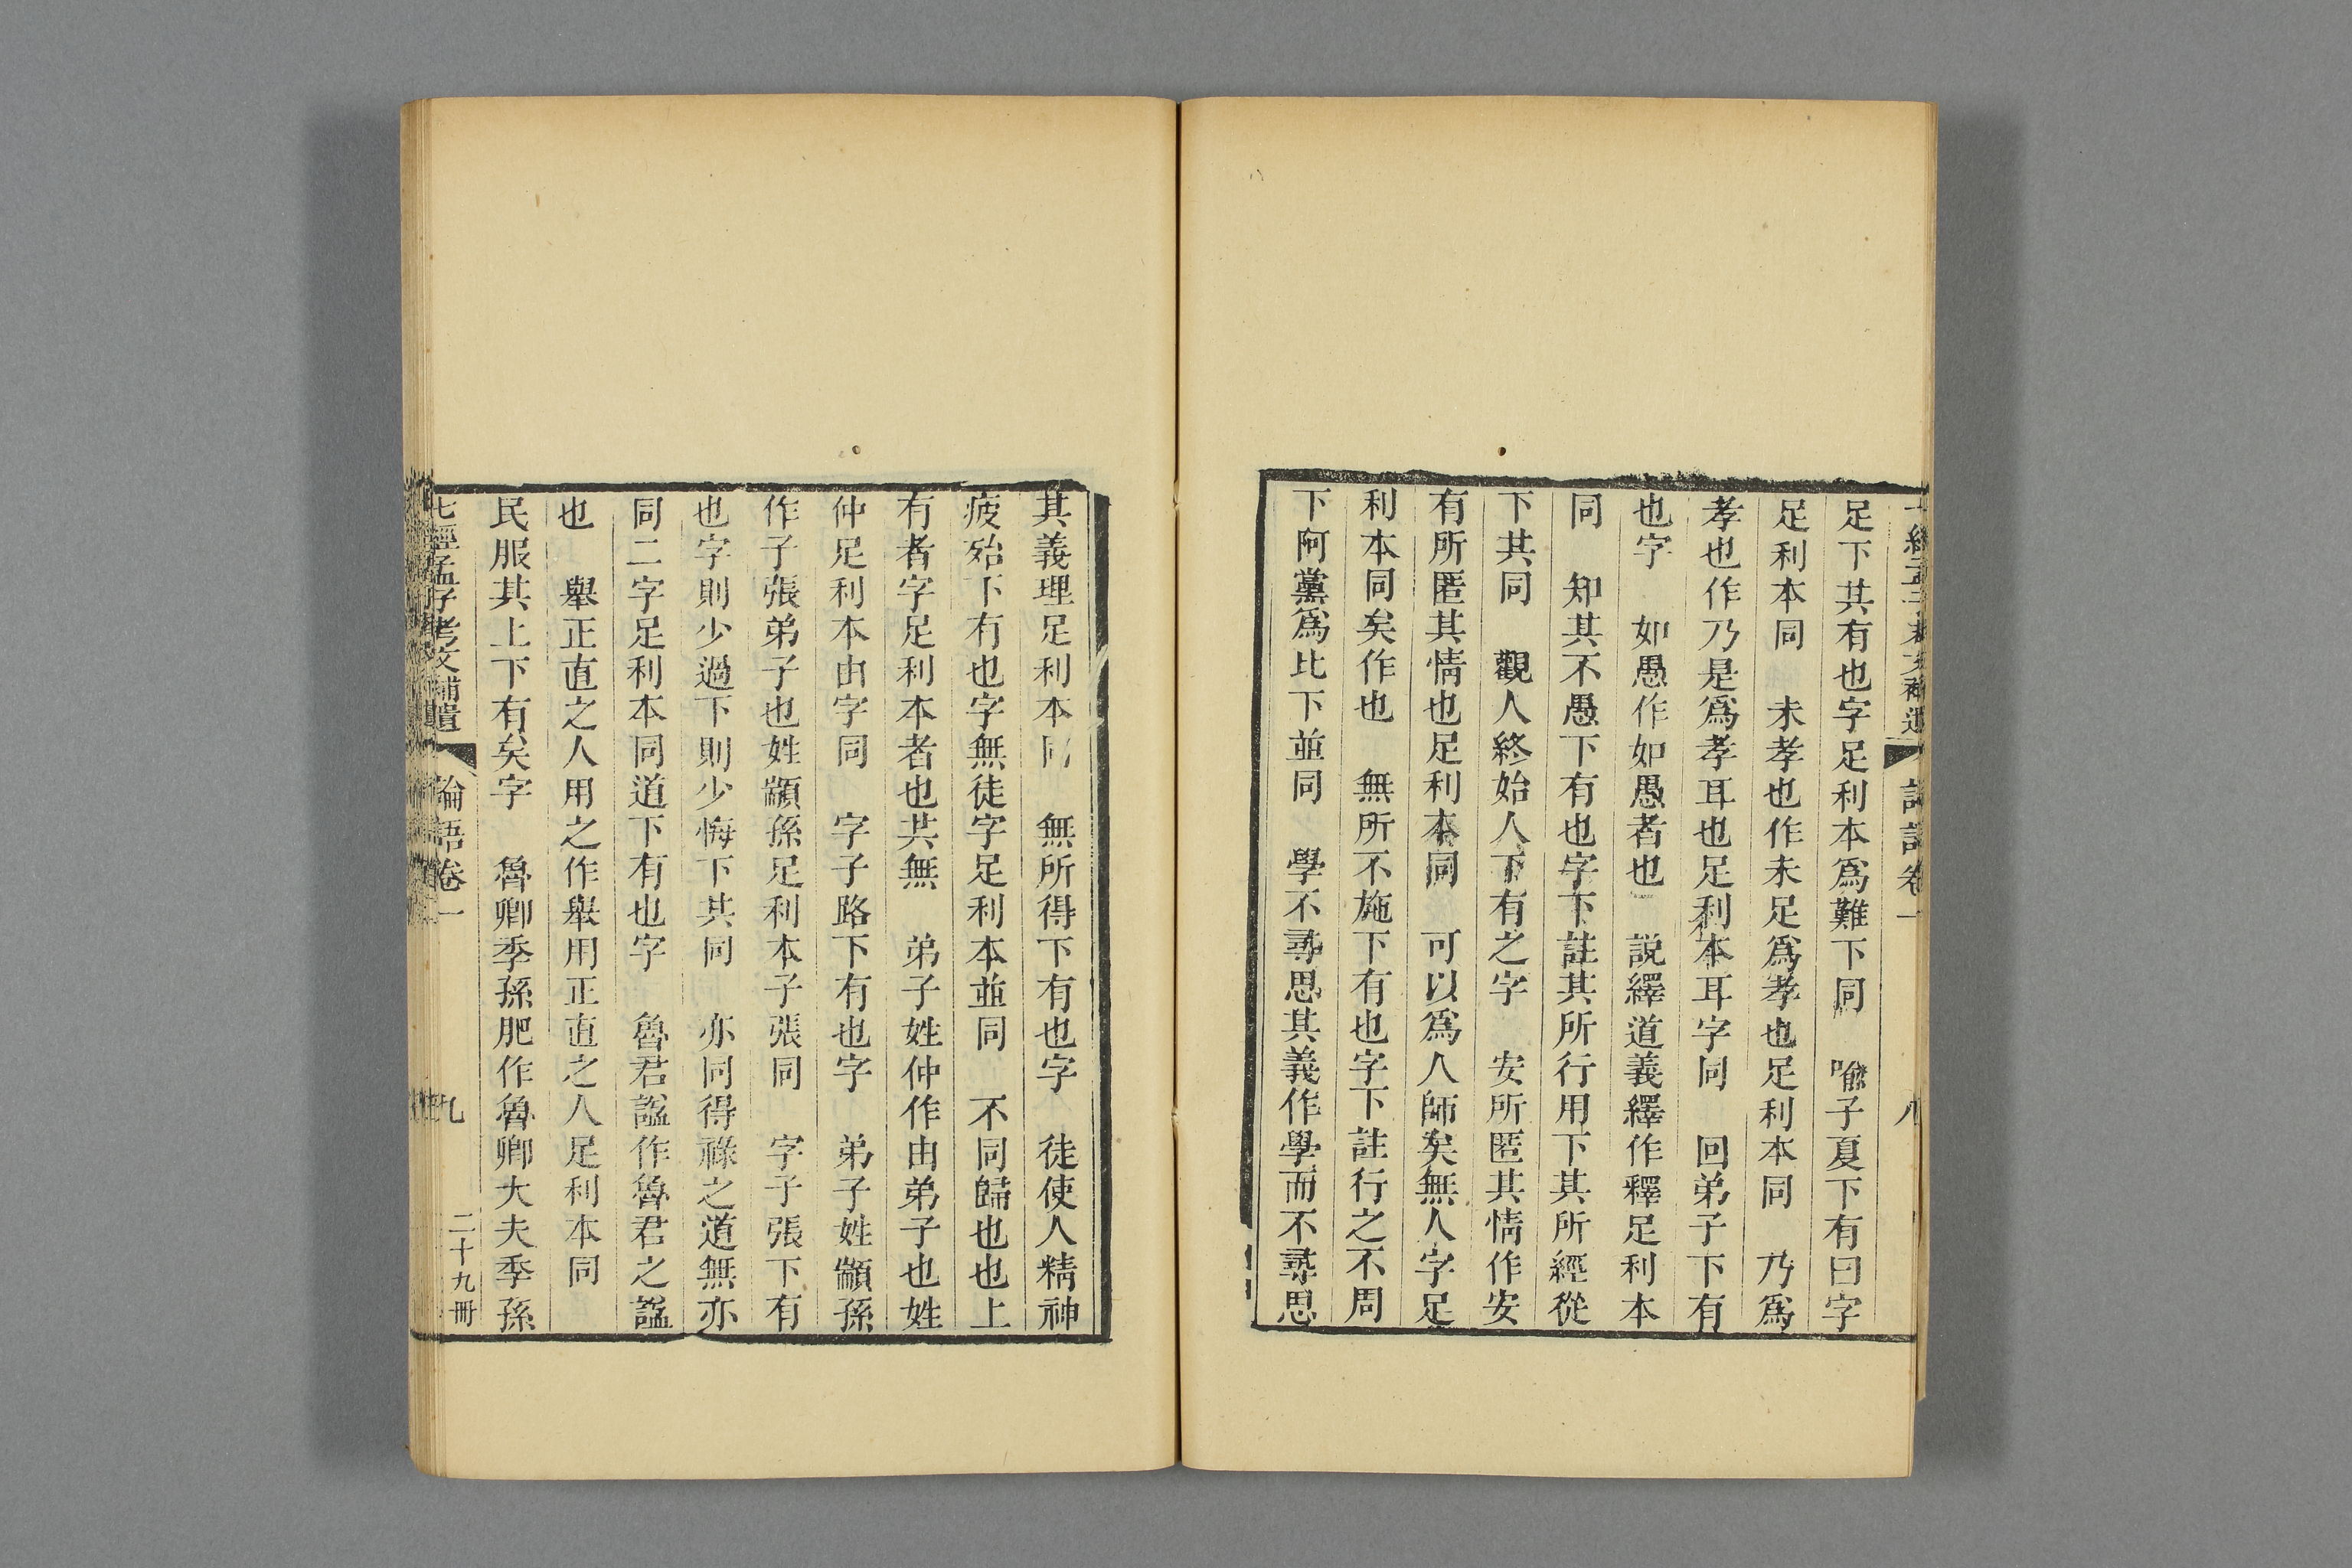 足下其有也字足利本爲難下同　喩子夏下有曰字
足利本同　未孝也作未足爲孝也足利本同　乃爲
孝也作乃是爲孝耳也足利本耳字同　回弟子下有
也字　如愚作如愚者也　説繹道義繹作釋足利本
同　知其不愚下有也字下註其所行用下其所經從
下其同　觀人終始人下有之字　安所匿其情作安
有所匿其情也足利本同　可以爲人師矣無人字足
利本同矣作也　無所不施下有也字下註行之不周
下阿黨爲比下並同　學不尋思其義作學而不尋思
其義理足利本同　無所得下有也字　徒使人精神
疲殆下有也字無徒字足利本並同　不同歸也也上
有者字足利本者也共無　弟子姓仲作由弟子也姓
仲足利本由字同　字子路下有也字　弟子姓顓孫
作子張弟子也姓顓孫足利本子張同　字子張下有
也字則少過下則少悔下其同　亦同得祿之道無亦
同二字足利本同道下有也字　魯君謚作魯君之謚
也　舉正直之人用之作舉用正直之人足利本同
民服其上下有矣字　魯卿季孫肥作魯卿大夫季孫
七經孟子考文補遺　論語卷一　九　二十九冊